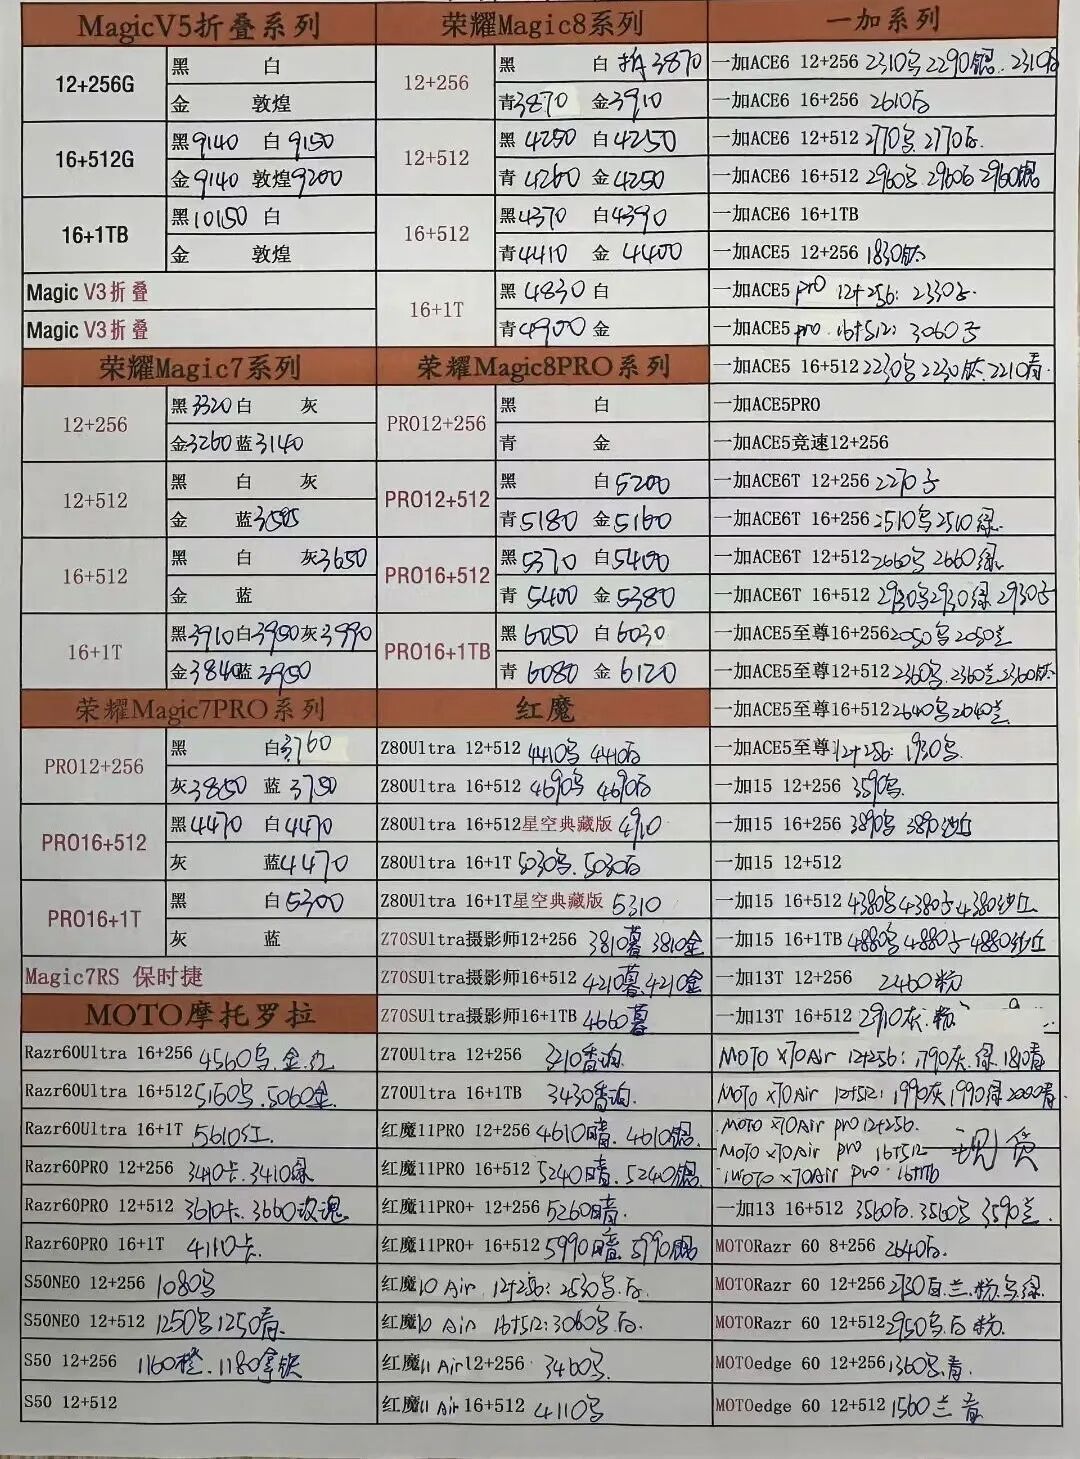 MagicV5折叠系列
12+256G
黑 白
金 敦煌
16+512G
黑9140 白9150
金9140 敦煌9200
16+1TB
黑10150 白
金 敦煌
Magic V3折叠
Magic V3折叠
荣耀Magic7系列
12+256
黑3320白 灰
金3260蓝3140
12+512
黑 白 灰
金 蓝3505
16+512
黑 白 灰3650
金 蓝
16+1T
黑3910白3950灰3990
金3840蓝3950
荣耀Magic7PRO系列
PRO12+256
黑 白3760
灰3850 蓝3750
PRO16+512
黑4470 白4470
灰 蓝4470
PRO16+1T
黑 白5300
灰 蓝
Magic7RS 保时捷
MOTO摩托罗拉
Razr60Ultra 16+256 4560乌.金.红
Razr60Ultra 16+512 5160乌.5060金
Razr60Ultra 16+1T 5610红
Razr60PRO 12+256 3410卡.3410绿
Razr60PRO 12+512 3610卡.3660玫瑰
Razr60PRO 16+1T 4110卡
S50NEO 12+256 1080乌
S50NEO 12+512 1250乌1250青
S50 12+256 1160橙.1180拿铁
S50 12+512
荣耀Magic8系列
12+256
黑 白 拆3870
青3870 金3910
12+512
黑4250 白4250
青4260 金4250
16+512
黑4370 白4390
青4410 金4400
16+1T
黑4830白
青4900金
荣耀Magic8PRO系列
PRO12+256
黑 白
青 金
PRO12+512
黑 白5200
青5180 金5160
PRO16+512
黑5370 白5400
青5400 金5380
PRO16+1TB
黑6050 白6030
青6080 金6120
红魔
Z80Ultra 12+512 4410乌 4410白
Z80Ultra 16+512 4690乌 4690白
Z80Ultra 16+512星空典藏版 4910
Z80Ultra 16+1T 5030乌.5030白
Z80Ultra 16+1T星空典藏版 5310
Z70SUltra摄影师12+256 3810暮 3810金
Z70SUltra摄影师16+512 4210暮.4210金
Z70SUltra摄影师16+1TB 4660暮
Z70Ultra 12+256 3210查询.
Z70Ultra 16+1TB 3430查询.
红魔11PRO 12+256 4610暗.4610银.
红魔11PRO 16+512 5240暗.5240银.
红魔11PRO+ 12+256 5260暗.
红魔11PRO+ 16+512 5990暗.5990银
红魔10 Air 12+256: 2530乌.白.
红魔10 Air 16+512: 3060乌.白.
红魔11 Air12+256 3460乌
红魔11 Air16+512 4110乌
一加系列
一加ACE6 12+256 2310乌2290银.2310白
一加ACE6 16+256 2610白
一加ACE6 12+512 2770乌.2770白.
一加ACE6 16+512 2960乌 2960白 2960银
一加ACE6 16+1TB
一加ACE5 12+256 1830钛
一加ACE5 pro 12+256: 2330子.
一加ACE5 pro. 16+512: 3060子
一加ACE5 16+512 2230乌2230钛.2210青.
一加ACE5PRO
一加ACE5竞速12+256
一加ACE6T 12+256 2270子
一加ACE6T 16+256 2510乌2510绿.
一加ACE6T 12+512 2660乌 2660绿.
一加ACE6T 16+512 2930乌2930绿2930子
一加ACE5至尊16+256 2050乌2050兰
一加ACE5至尊12+512 2360乌.2360兰.2360钛
一加ACE5至尊16+512 2640乌2640兰.
一加ACE5至尊12+256: 1930乌.
一加15 12+256 3590乌.
一加15 16+256 3890乌 3890沙丘
一加15 12+512
一加15 16+512 4380乌4380子4380沙丘
一加15 16+1TB 4880乌4880子4880沙丘
一加13T 12+256 2460粉
一加13T 16+512 2910灰.粉
MOTO X70Air 12+256: 1790灰.绿.1810青
MOTO X70Air 12+512: 1990灰1990绿2000青
MOTO X70Air pro 12+256.
MOTO X70Air pro 16+512 现货
MOTO X70Air pro. 16+1TB
一加13 16+512 3560白.3560乌 3590兰.
MOTORazr 60 8+256 2640白.
MOTORazr 60 12+256 2750白.兰.粉.乌.绿.
MOTORazr 60 12+512 2950乌.白.粉.
MOTOedge 60 12+256 1360乌.青.
MOTOedge 60 12+512 1560兰 青